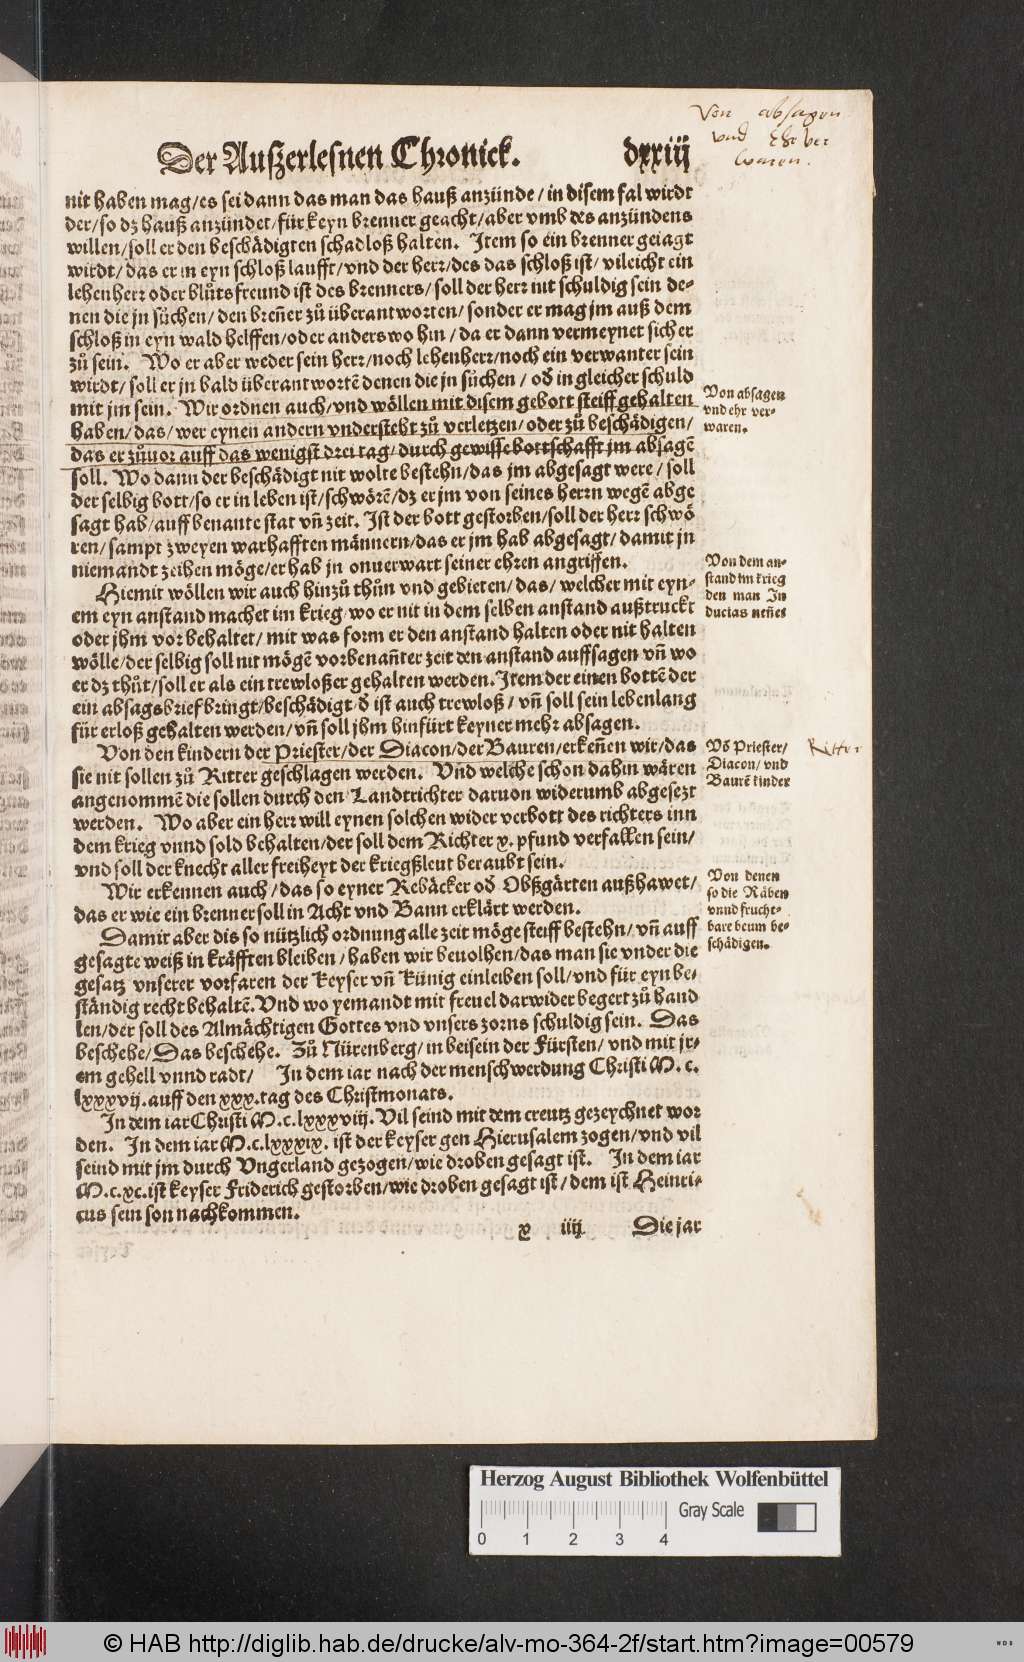 Von absagen
vnd Ehr ver
waren.
Der Auszerlesnen Chronick. dxxiij
nit haben mag/es sei dann das man das hauß anzünde/in disem fal wirdt
der/so dz hauß anzündet/für keyn brenner geacht/aber vmb des anzündens
willen/soll er den beschädigten schadloß halten. Item so ein brenner geiagt
wirdt/das er in eyn schloß laufft/vnd der herr/des das schloß ist/vileicht ein
lehenherr oder blůtsfreund ist des brenners/soll der herr nit schuldig sein de-
nen die jn sůchen/den breñer zů überantworten/sonder er mag jm auß dem
schloß in eyn wald helffen/oder anderswo hin/da er dann vermeynet sicher
zů sein. Wo er aber weder sein herr/noch lehenherr/noch ein verwanter sein
wirdt/soll er jn bald überantwortē denen die jn sůchen/oď in gleicher schuld
mit jm sein. Wir ordnen auch/vnd wöllen mit disem gebott steiff gehalten
haben/das/wer eynen andern vndersteht zů verletzen/oder zů beschädigen/
das er zůuor auff das wenigst drei tag/durch gewisse bottschafft jm absagē
soll. Wo dann der beschädigt nit wolte bestehn/das jm abgesagt were/soll
der selbig bott/so er in leben ist/schwörē/dz er jm von seines herrn wegē abge
sagt hab/auff benante stat vñ zeit. Ist der bott gestorben/soll der herr schwö
ren/sampt zweyen warhafften männern/das er jm hab abgesagt/damit jn
niemandt zeihen möge/er hab jn onuerwart seiner ehren angriffen.
Hiemit wöllen wir auch hinzů thůn vnd gebieten/das/welcher mit eyn-
em eyn anstand machet im krieg/wo er nit in dem selben anstand außtruckt
oder jhm vorbehaltet/mit was form er den anstand halten oder nit halten
wölle/der selbig soll nit mögē vorbenañter zeit den anstand auffsagen vñ wo
er dz thůt/soll er als ein trewloßer gehalten werden. Item der einen bottē der
ein absagsbrief bringt/beschädigt/ď ist auch trewloß/vñ soll sein lebenlang
für erloß gehalten werden/vñ soll jhm hinfürt keyner mehr absagen.
Von den kindern der Priester/der Diacon/der Bauren/erkeñen wir/das
sie nit sollen zů Ritter geschlagen werden. Vnd welche schon dahin wären
angenommē die sollen durch den Landtrichter daruon widerumb abgesezt
werden. Wo aber ein herr will eynen solchen wider verbott des richters inn
dem krieg vnnd sold behalten/der soll dem Richter x. pfund verfallen sein/
vnd soll der knecht aller freiheyt der kriegßleut beraubt sein.
Wir erkennen auch/das so eyner Rebäcker oď Obßgärten außhawet/
das er wie ein brenner soll in Acht vnd Bann erklärt werden.
Damit aber dis so nützlich ordnung alle zeit möge steiff bestehn/vñ auff
gesagte weiß in kräfften bleiben/haben wir beuolhen/das man sie vnder die
gesatz vnserer vorfaren der Keyser vñ Künig einleiben soll/vnd für eyn be-
ständig recht behaltē. Vnd wo yemandt mit freuel darwider begert zů hand
len/der soll des Almächtigen Gottes vnd vnsers zorns schuldig sein. Das
beschehe/Das beschehe. Zů Nürenberg/in beisein der Fürsten/vnd mit jr-
em gehell vnnd radt/ In dem iar nach der menschwerdung Christi M. c.
lxxxvij. auff den xxx. tag des Christmonats.
In dem iar Christi M.c.lxxxviij. Vil seind mit dem creutz gezeychnet wor
den. In dem iar M.c.lxxxix. ist der keyser gen Hierusalem zogen/vnd vil
seind mit jm durch Vngerland gezogen/wie droben gesagt ist. In dem iar
M.c.xc. ist keyser Friderich gestorben/wie droben gesagt ist/dem ist Heinri-
cus sein son nachkommen.
x iiij Die jar
Von absagen
vnd ehr ver-
waren.
Von dem an-
stand im krieg
den man In
ducias neñet
Võ Priester/
Diacon/vnd
Baurē kinder
Ritter
Von denen
so die Räben
vnnd frucht-
bare beum be-
schädigen.
Herzog August Bibliothek Wolfenbüttel
Gray Scale
0 1 2 3 4
© HAB http://diglib.hab.de/drucke/alv-mo-364-2f/start.htm?image=00579